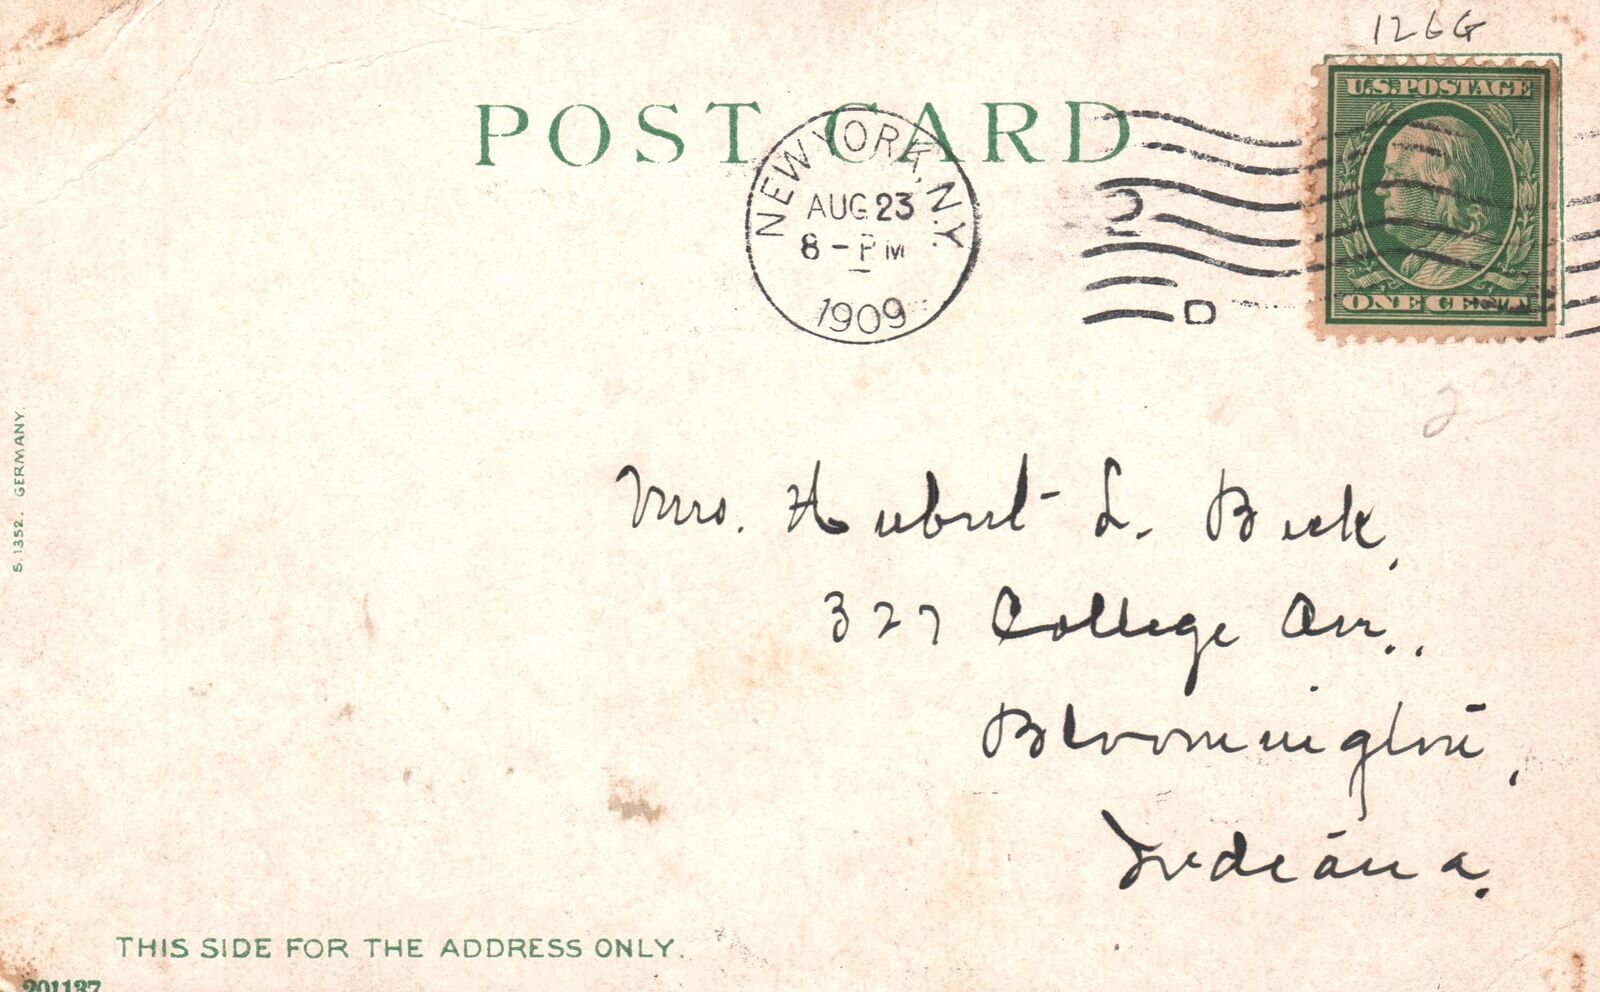 126G
U.S. POSTAGE
POST CARD
NEW YORK, N.Y.
AUG 23
8 - PM
1909
2
D
ONE CENT
S. 1352. GERMANY.
Mrs. Hubert L. Beck,
327 College Ave.,
Bloomington,
Indiana.
THIS SIDE FOR THE ADDRESS ONLY.
201137